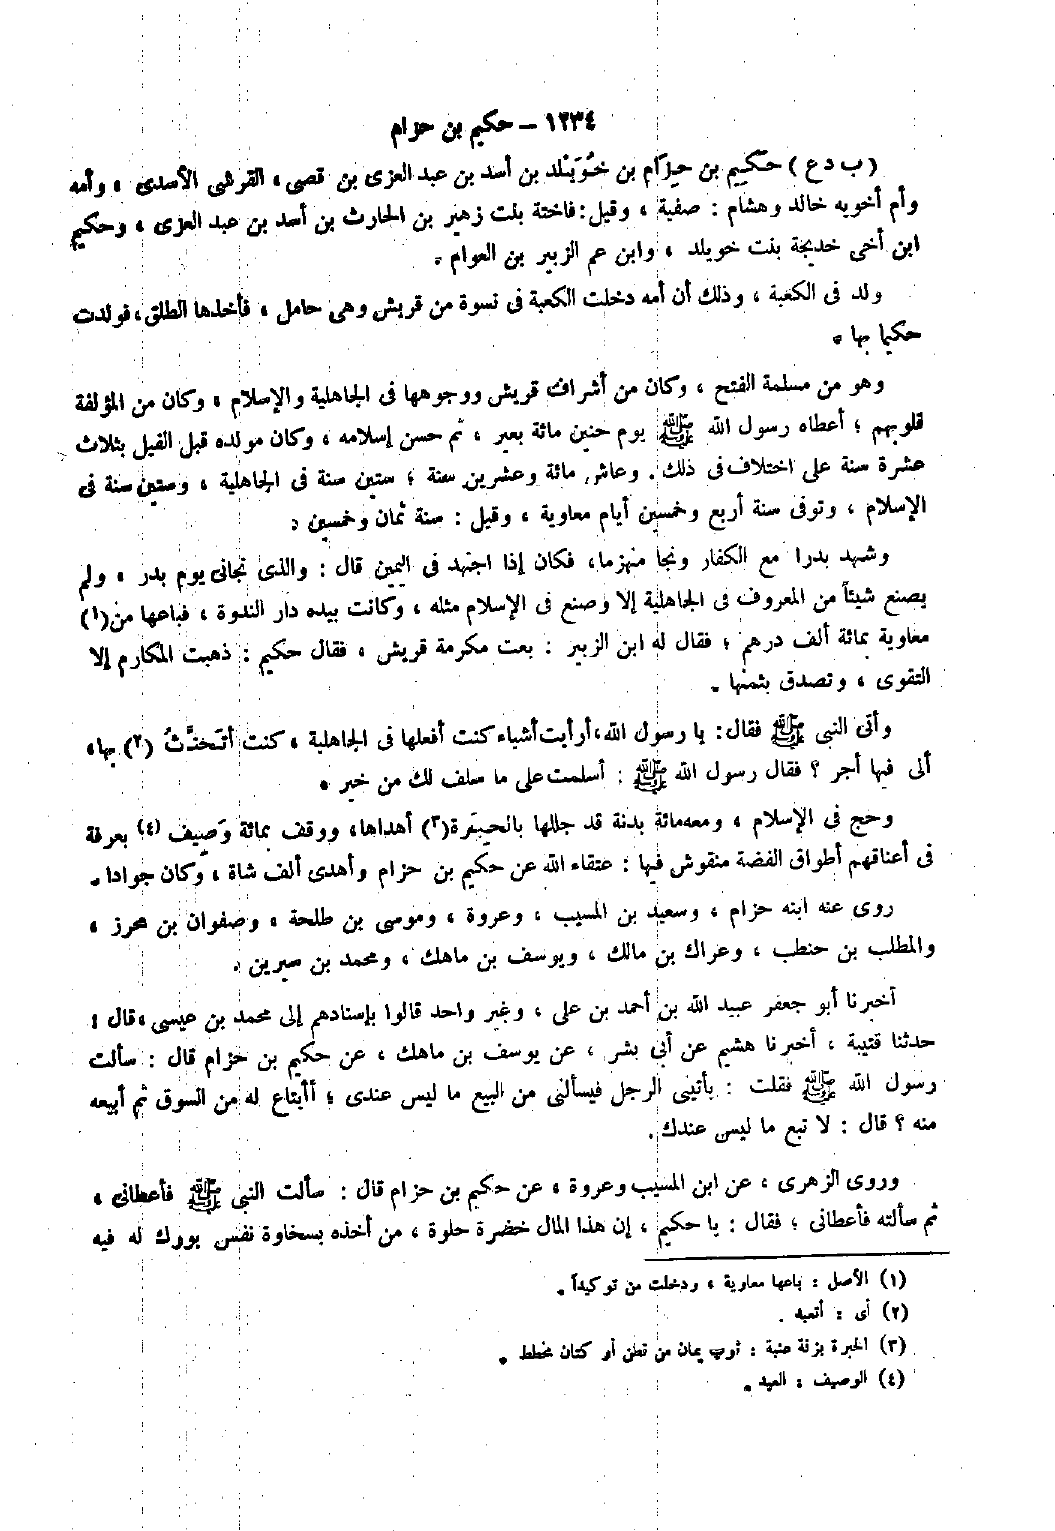 ١٢٣٤ – حكيم بن حزام
( ب د ع ) حَكِيم بن حِزَام بن خُوَيْلد بن أسد بن عبد العزى بن قصى ، القرشى الأسدى ، وأمه
وأم أخويه خالد وهشام : صفية ، وقيل : فاختة بنت زهير بن الحارث بن أسد بن عبد العزى ، وحكيم
ابن أخى خديجة بنت خويلد ، وابن عم الزبير بن العوام .
ولد فى الكعبة ، وذلك أن أمه دخلت الكعبة فى نسوة من قريش وهى حامل ، فأخذها الطلق ، فولدت
حكيما بها .
وهو من مسلمة الفتح ، وكان من أشراف قريش ووجوهها فى الجاهلية والإسلام ، وكان من المؤلفة
قلوبهم ؛ أعطاه رسول الله ﷺ يوم حنين مائة بعير ، ثم حسن إسلامه ، وكان مولده قبل الفيل بثلاث
عشرة سنة على اختلاف فى ذلك . وعاش مائة وعشرين سنة ؛ ستين سنة فى الجاهلية ، وستين سنة فى
الإسلام ، وتوفى سنة أربع وخمسين أيام معاوية ، وقيل : سنة ثمان وخمسين :
وشهد بدرا مع الكفار ونجا منهزما ، فكان إذا اجتهد فى اليمين قال : والذى نجانى يوم بدر ، ولم
يصنع شيئاً من المعروف فى الجاهلية إلا وصنع فى الإسلام مثله ، وكانت بيده دار الندوة ، فباعها من (١)
معاوية بمائة ألف درهم ؛ فقال له ابن الزبير : بعت مكرمة قريش ، فقال حكيم : ذهبت المكارم إلا
التقوى ، وتصدق بثمنها .
وأتى النبى ﷺ فقال : يا رسول الله ، أرأيت أشياء كنت أفعلها فى الجاهلية ، كنت أتَحَنَّثُ (٢) بها ،
ألى فيها أجر ؟ فقال رسول الله ﷺ : أسلمت على ما سلف لك من خير .
وحج فى الإسلام ، ومعه مائة بدنة قد جللها بالحِبَرة (٣) أهداها ، ووقف بمائة وَصِيف (٤) بعرفة
فى أعناقهم أطواق الفضة منقوش فيها : عتقاء الله عن حكيم بن حزام وأهدى ألف شاة ، وكان جوادا .
روى عنه ابنه حزام ، وسعيد بن المسيب ، وعروة ، وموسى بن طلحة ، وصفوان بن محرز ،
والمطلب بن حنطب ، وعراك بن مالك ، ويوسف بن ماهك ، ومحمد بن سيرين .
أخبرنا أبو جعفر عبيد الله بن أحمد بن على ، وغير واحد قالوا بإسنادهم إلى محمد بن عيسى ، قال :
حدثنا قتيبة ، أخبرنا هشيم عن أبى بشر ، عن يوسف بن ماهك ، عن حكيم بن حزام قال : سألت
رسول الله ﷺ فقلت : يأتينى الرجل فيسألنى من البيع ما ليس عندى ؛ أأبتاع له من السوق ثم أبيعه
منه ؟ قال : لا تبع ما ليس عندك .
وروى الزهرى ، عن ابن المسيب وعروة ، عن حكيم بن حزام قال : سألت النبى ﷺ فأعطانى ،
ثم سألته فأعطانى ؛ فقال : يا حكيم ، إن هذا المال خضرة حلوة ، من أخذه بسخاوة نفس بورك له فيه
(١) الأصل : باعها معاوية ، ودخلت من توكيداً .
(٢) أى : أتعبد .
(٣) الحبرة بزنة عنبة : ثوب يمان من قطن أو كتان مخطط .
(٤) الوصيف : العبد .